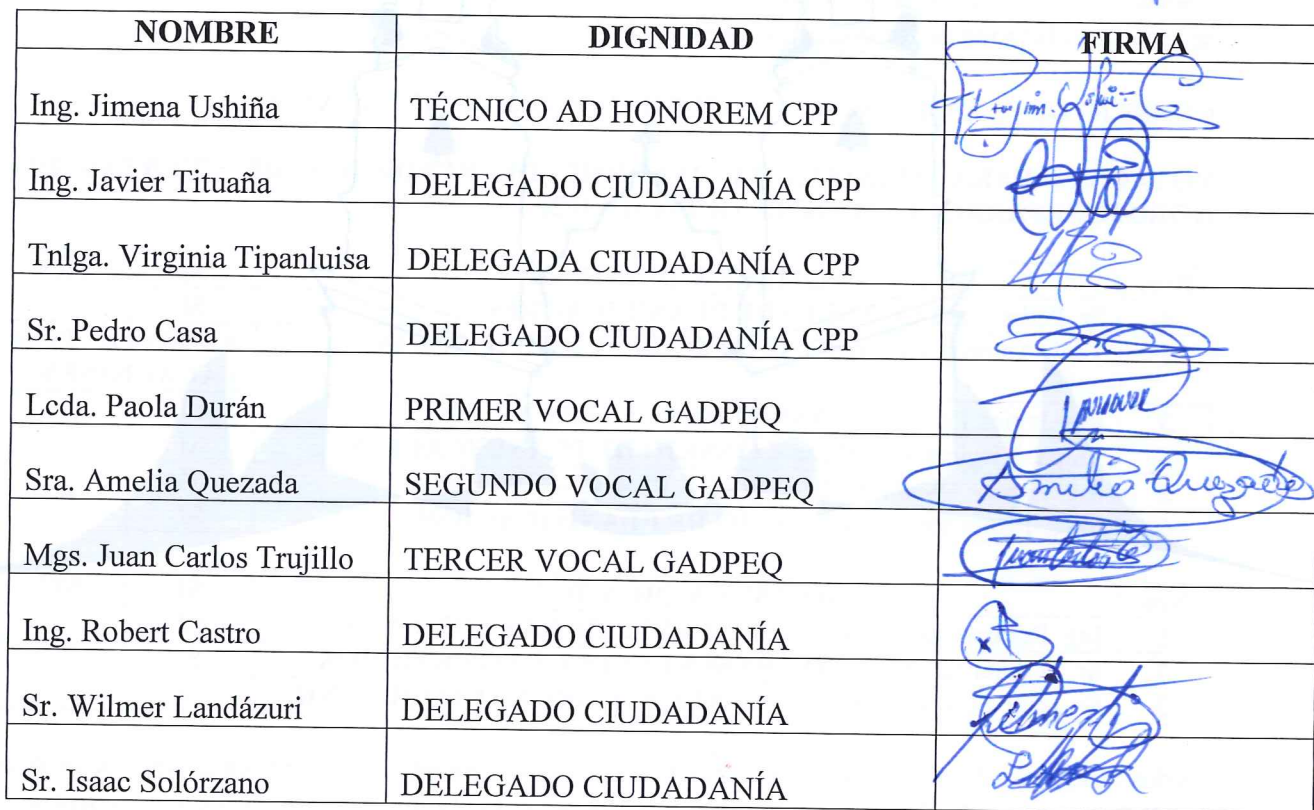 NOMBRE DIGNIDAD FIRMA
Ing. Jimena Ushiña TÉCNICO AD HONOREM CPP
Ing. Javier Tituaña DELEGADO CIUDADANÍA CPP
Tnlga. Virginia Tipanluisa DELEGADA CIUDADANÍA CPP
Sr. Pedro Casa DELEGADO CIUDADANÍA CPP
Lcda. Paola Durán PRIMER VOCAL GADPEQ
Sra. Amelia Quezada SEGUNDO VOCAL GADPEQ Amelia Quezada
Mgs. Juan Carlos Trujillo TERCER VOCAL GADPEQ
Ing. Robert Castro DELEGADO CIUDADANÍA
Sr. Wilmer Landázuri DELEGADO CIUDADANÍA
Sr. Isaac Solórzano DELEGADO CIUDADANÍA